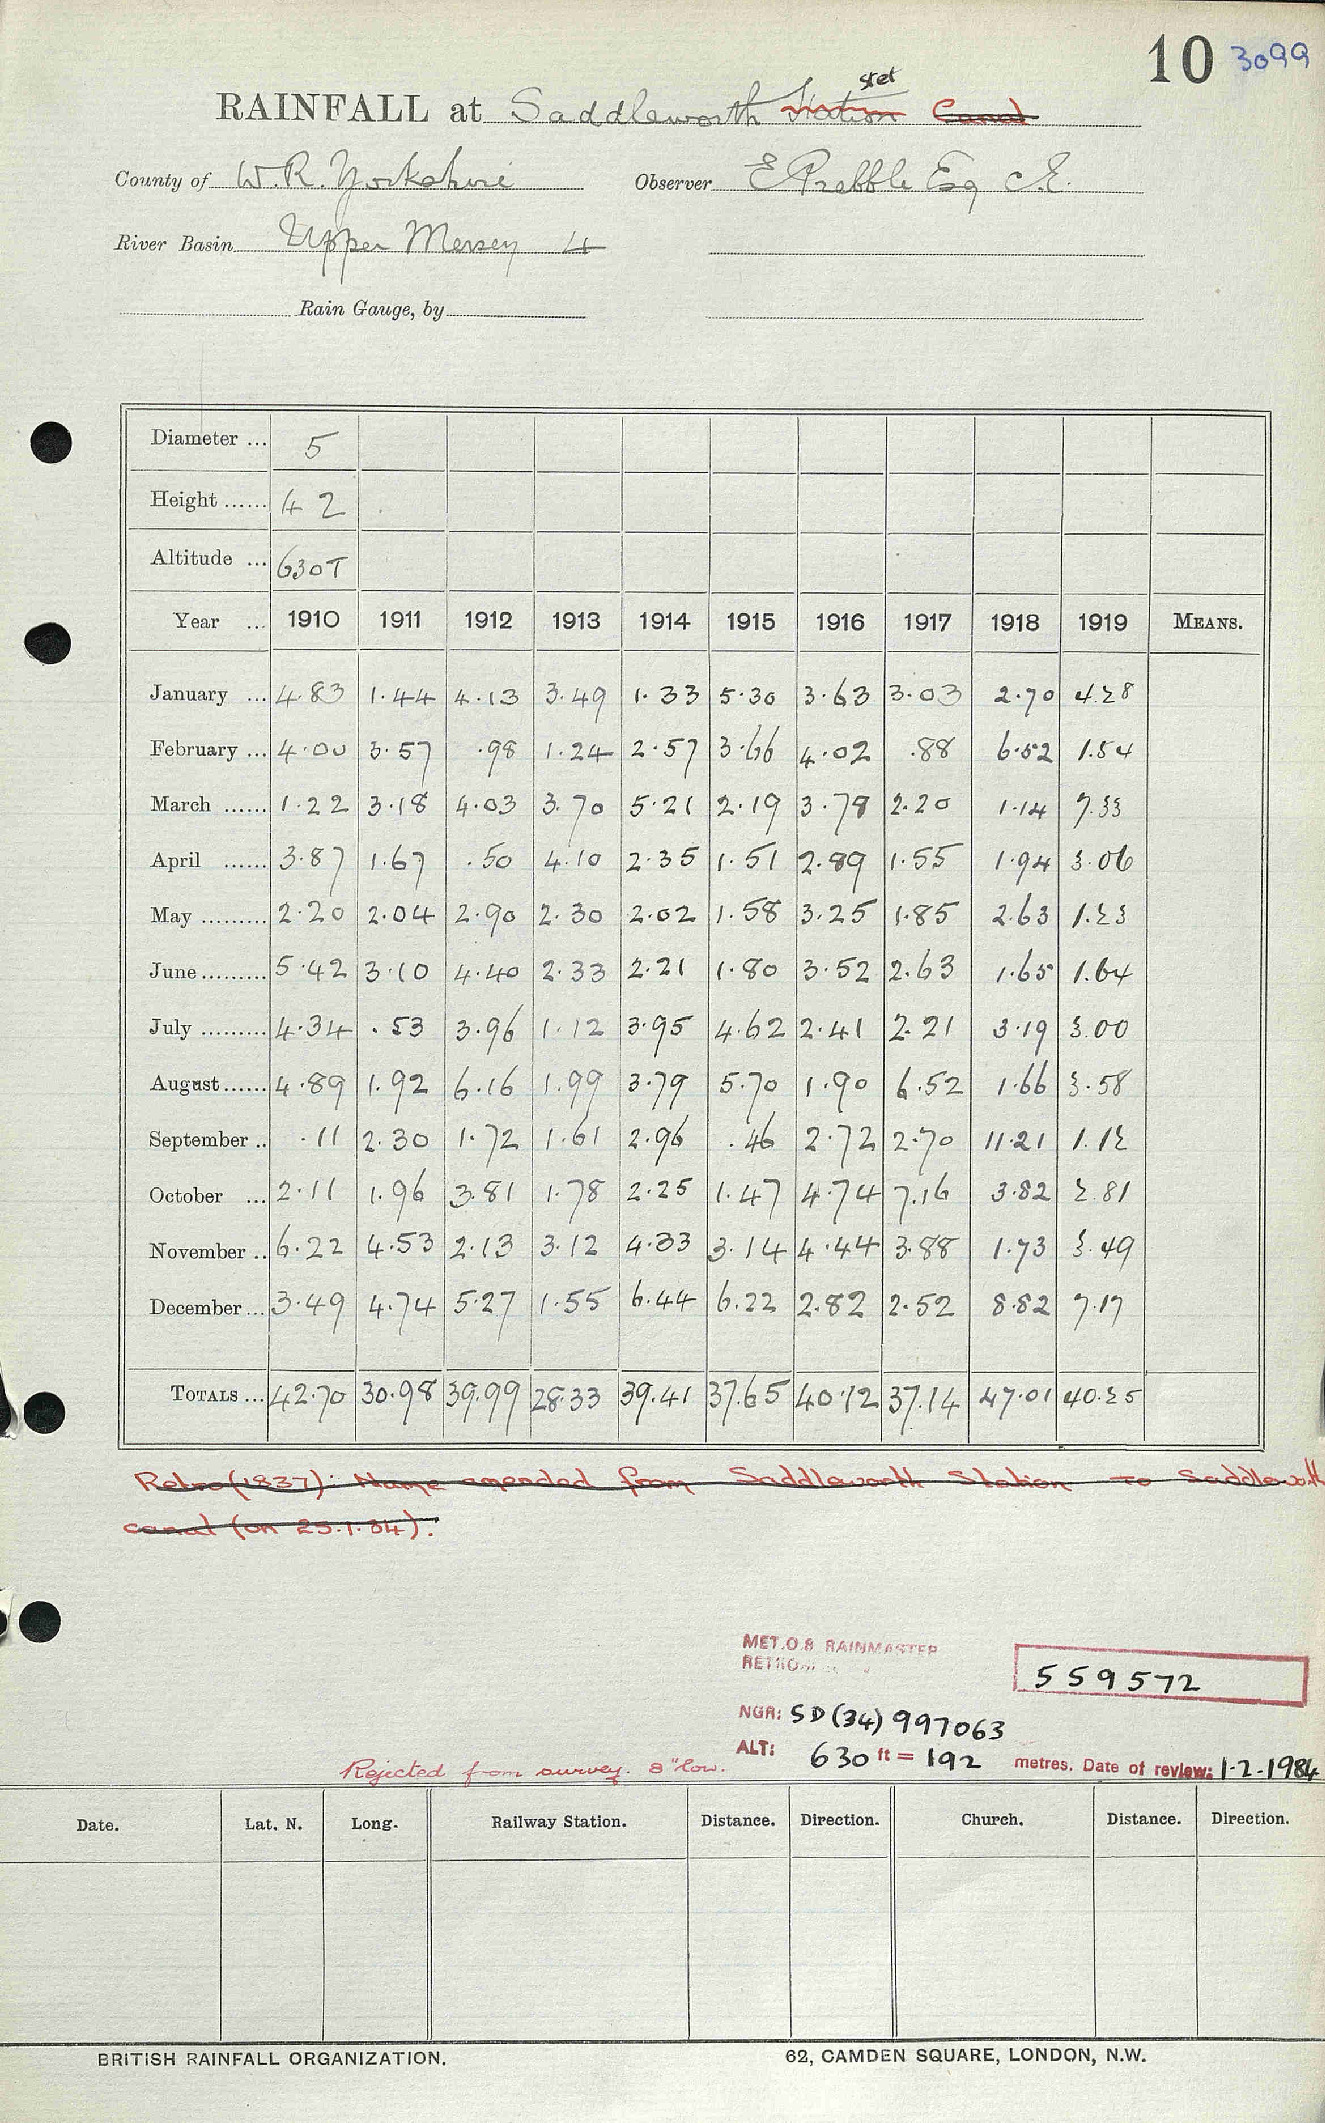 10 3099
stet
RAINFALL at Saddleworth Station Canal
County of W.R. Yorkshire Observer E Prebble Esq C.E.
River Basin Upper Mersey 4
Rain Gauge, by
Diameter ... 5
Height ...... 4 2
Altitude ... 630T
Year ... 1910 1911 1912 1913 1914 1915 1916 1917 1918 1919 MEANS.
January ... 4.83 1.44 4.13 3.49 1.33 5.30 3.63 3.03 2.70 4.28
February ... 4.00 3.57 .98 1.24 2.57 3.66 4.02 .88 6.52 1.54
March ...... 1.22 3.18 4.03 3.70 5.21 2.19 3.78 2.20 1.14 7.33
April ...... 3.87 1.67 .50 4.10 2.35 1.51 2.89 1.55 1.94 3.06
May ......... 2.20 2.04 2.90 2.30 2.02 1.58 3.25 1.85 2.63 1.23
June ......... 5.42 3.10 4.40 2.33 2.21 1.80 3.52 2.63 1.65 1.64
July ......... 4.34 .53 3.96 1.12 3.95 4.62 2.41 2.21 3.19 3.00
August ...... 4.89 1.92 6.16 1.99 3.79 5.70 1.90 6.52 1.66 3.58
September .. .11 2.30 1.72 1.61 2.96 .46 2.72 2.70 11.21 1.12
October ... 2.11 1.96 3.81 1.78 2.25 1.47 4.74 7.16 3.82 2.81
November .. 6.22 4.53 2.13 3.12 4.33 3.14 4.44 3.88 1.73 3.49
December ... 3.49 4.74 5.27 1.55 6.44 6.22 2.82 2.52 8.82 7.17
TOTALS ... 42.70 30.98 39.99 28.33 39.41 37.65 40.12 37.14 47.01 40.25
Retro (1837): Name amended from Saddleworth Station to Saddleworth
canal (on 25.1.84).
MET.O.8 RAINMASTER
559572
NGR: SD (34) 997063
ALT: 630 ft = 192 metres. Date of review: 1-2-1984
Rejected from survey. 8" low.
Date. Lat. N. Long. Railway Station. Distance. Direction. Church. Distance. Direction.
BRITISH RAINFALL ORGANIZATION. 62, CAMDEN SQUARE, LONDON, N.W.